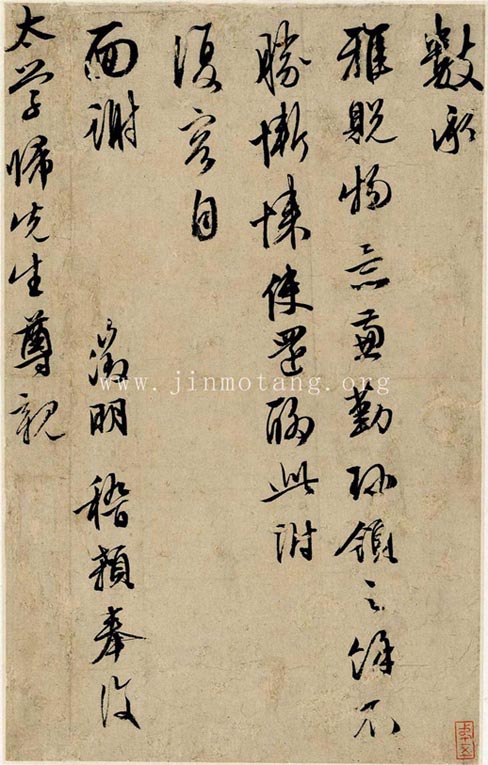 數承
雅貺物意兼勤祗領之餘不
勝慚悚使還聊此附
復容自
面謝 徵明稽顙奉復
太學歸先生尊親
www.jinmotang.org